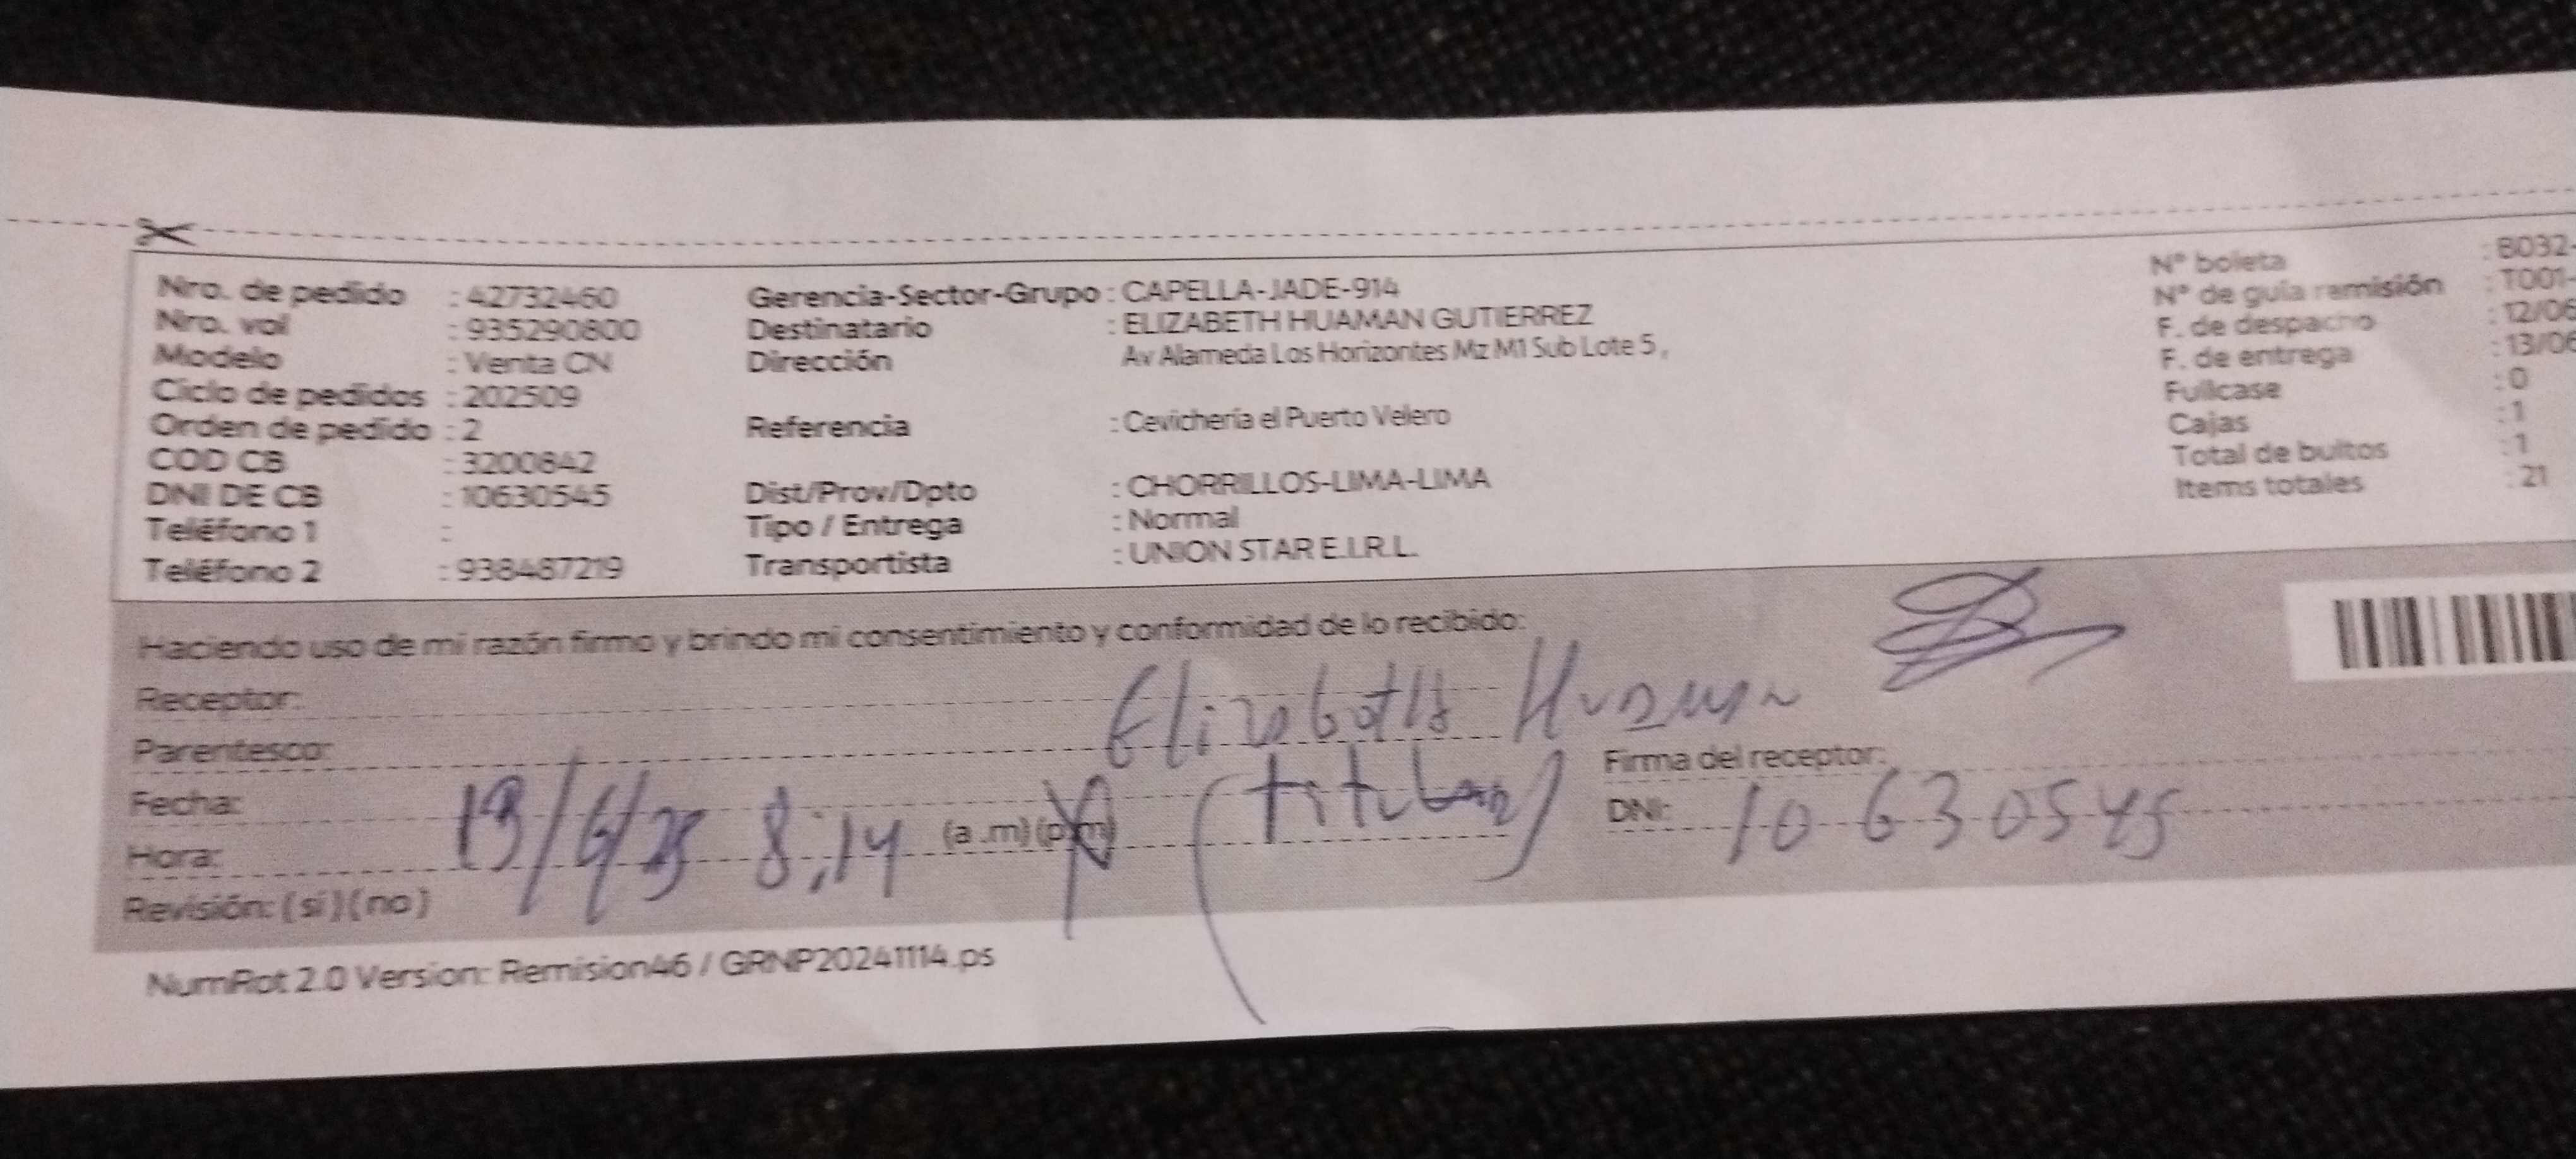 Nro. de pedido : 42732460
Nro. vol : 935290800
Modelo : Venta CN
Ciclo de pedidos : 202509
Orden de pedido : 2
COD CB : 3200842
DNI DE CB : 10630545
Teléfono 1 :
Teléfono 2 : 938487219
Gerencia-Sector-Grupo : CAPELLA-JADE-914
Destinatario : ELIZABETH HUAMAN GUTIERREZ
Dirección Av Alameda Los Horizontes Mz M1 Sub Lote 5 ,
Referencia : Cevichería el Puerto Velero
Dist/Prov/Dpto : CHORRILLOS-LIMA-LIMA
Tipo / Entrega : Normal
Transportista : UNION STAR E.I.R.L.
N° boleta : B032-
N° de guía remisión : T001-
F. de despacho : 12/06
F. de entrega : 13/06
Fullcase : 0
Cajas : 1
Total de bultos : 1
Items totales : 21
Haciendo uso de mi razón firmo y brindo mi consentimiento y conformidad de lo recibido:
Receptor: Elizabeth Huaman
Parentesco: (titular)
Fecha: 13/6/25
Hora: 8:14 (a .m) (p.m)
Revisión: (si) (no)
Firma del receptor:
DNI: 10630545
NumRot 2.0 Version: Remision46 / GRNP20241114.ps